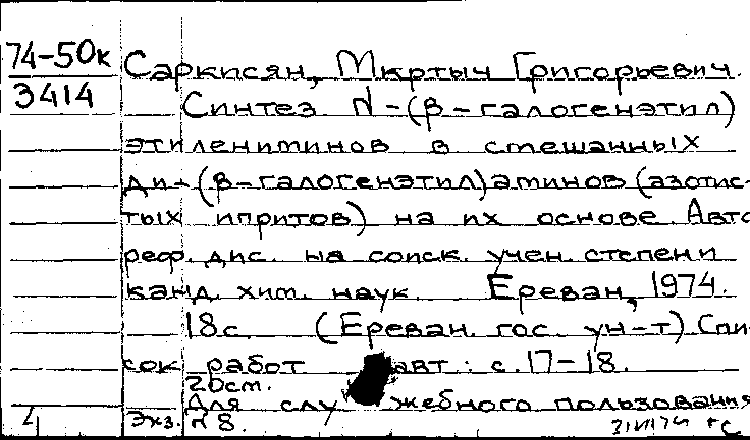 74-50к
3414
Саркисян, Мкртыч Григорьевич.
Синтез N-(β-галогенэтил)
этилениминов в смешанных
ди-(β-галогенэтил)аминов (азотис-
тых ипритов) на их основе. Авто
реф. дис. на соиск. учен. степени
канд. хим. наук. Ереван, 1974.
18с. (Ереван. гос. ун-т) Спи
сок работ авт.: с. 17-18.
20см.
Для служебного пользования
Экз. N 8.